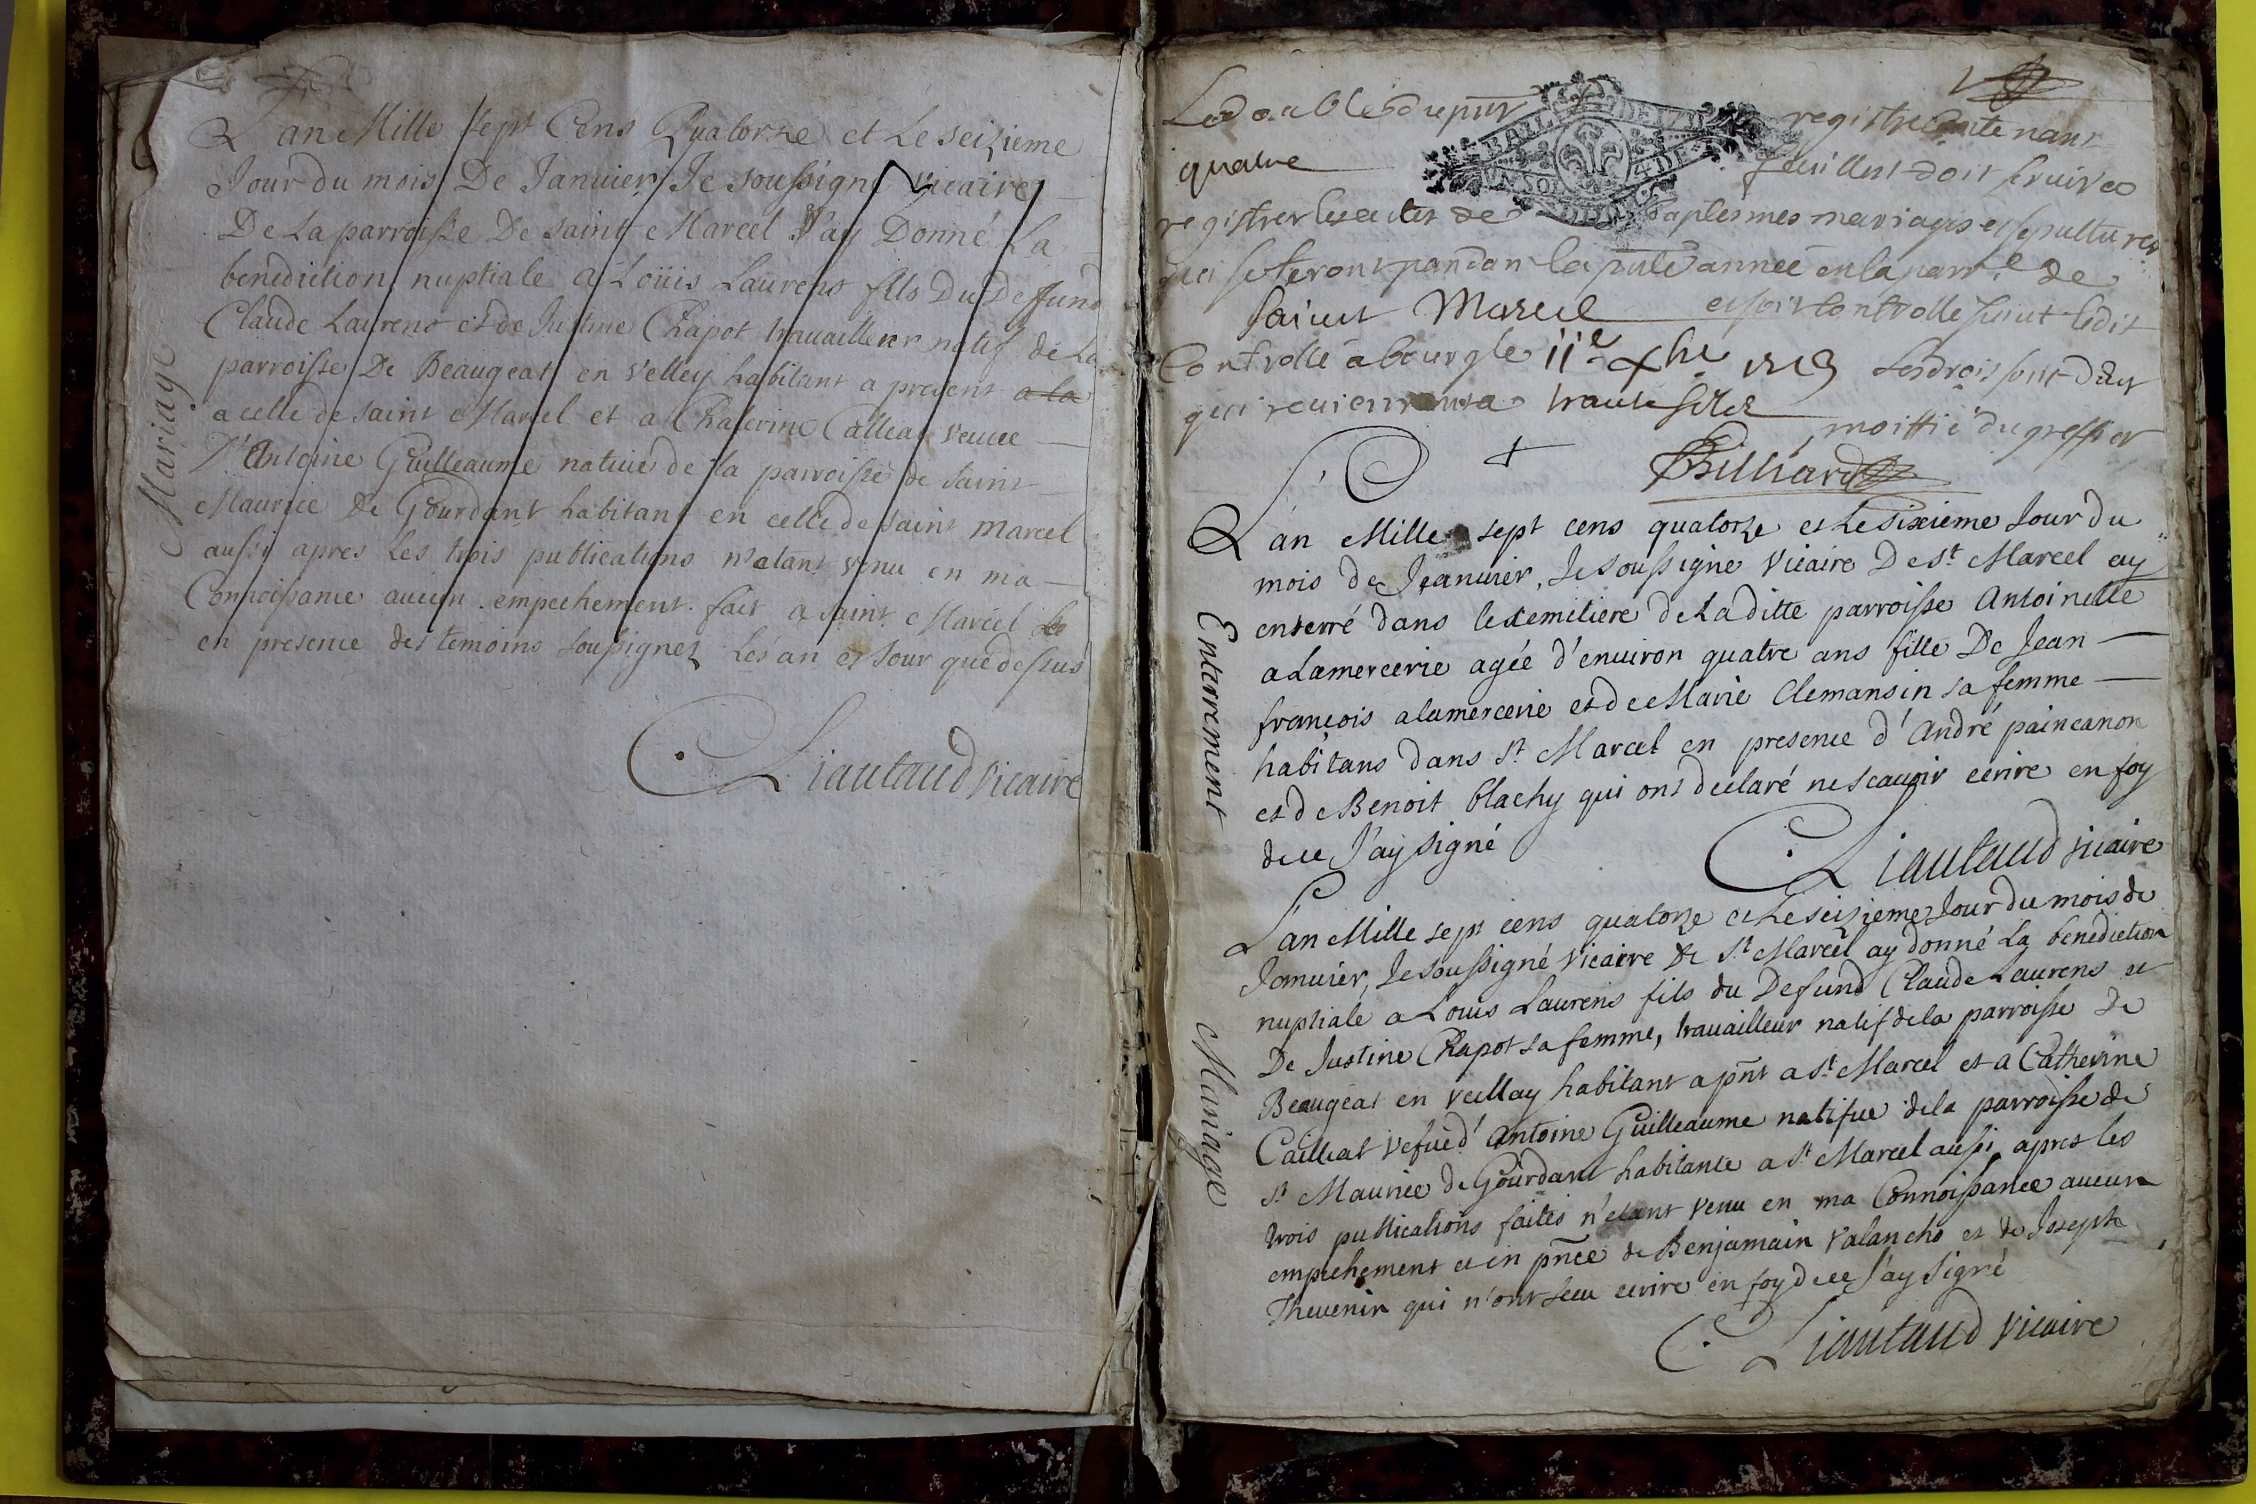 Mariage
L'an Mille sept Cens Quatorze et Le seizieme
Jour du mois De Januier Je soussigné vicaire
De La parroisse De saint Marcel J'ay Donné La
benediction nuptiale a Loüis Laurens fils Du Deffund
Claude Laurens et de Justine Chapot trauailleur natif de La
parroisse De Beaugeat en Velley habitant a present a la
a celle de saint Marcel et a Chaterine Calleat veuue
D'Antoine Guilleaume natiue de la parroisse de saint
Maurice de Gourdant habitant en celle de saint Marcel
aussy apres Les trois publications n'etant venu en ma
Connoissance aucun empechement fait a saint Marcel
en presence des temoins soussignez Les an et Jour que dessus
Liautaud vicaire
1
Le double du pnt registre contenant
quatre feuillet doit seruir a
registrer les actes de baptesmes mariages et sepultures
qui se feront pandan la pnte année en la parr.e de
Saint Marcel et soit controllé suiut ledit
Controlle a bourg le 11e xbre 1713 Les drois sont dus
qui reuiennent a trante solz
moittié du greffier
Billiard
BAIL DE
4 DE
Enterrement
L'an Mille sept cens quatorze et Le sixieme Jour du
mois de Jeanuier, Je soussigne Vicaire De st Marcel ay
enterré dans le cemetiere de La ditte parroisse Antoinette
a Lamercerie agée d'enuiron quatre ans fille De Jean
françois alamercerie et de Marie Clemansin sa femme
habitans dans st Marcel en presence d'André paincanon
et de Benoit blachy qui ont declaré ne scauoir ecrire en foy
de ce J'ay signé
Liautaud vicaire
Mariage
L'an Mille sept cens quatorze et Le seizieme Jour du mois de
Januier, Je soussigné vicaire de st Marcel ay donné La benediction
nuptiale a Louis Laurens fils du Defund Claude Laurens et
De Justine Chapot sa femme, trauailleur natif de la parroisse de
Beaugeat en veellay habitant a pñt a st Marcel et a Catherine
Cailleat vefue d'Antoine Guilleaume natifue de la parroisse de
st Maurice de Gourdant habitante a st Marcel aussi, apres les
trois publications faites n'etant venu en ma Connoissance aucun
empechement et en pñce de Benjamain Valancho et de Joseph
Theuenin qui n'ont sceu ecrire en foy de ce J'ay signé
Liautaud vicaire